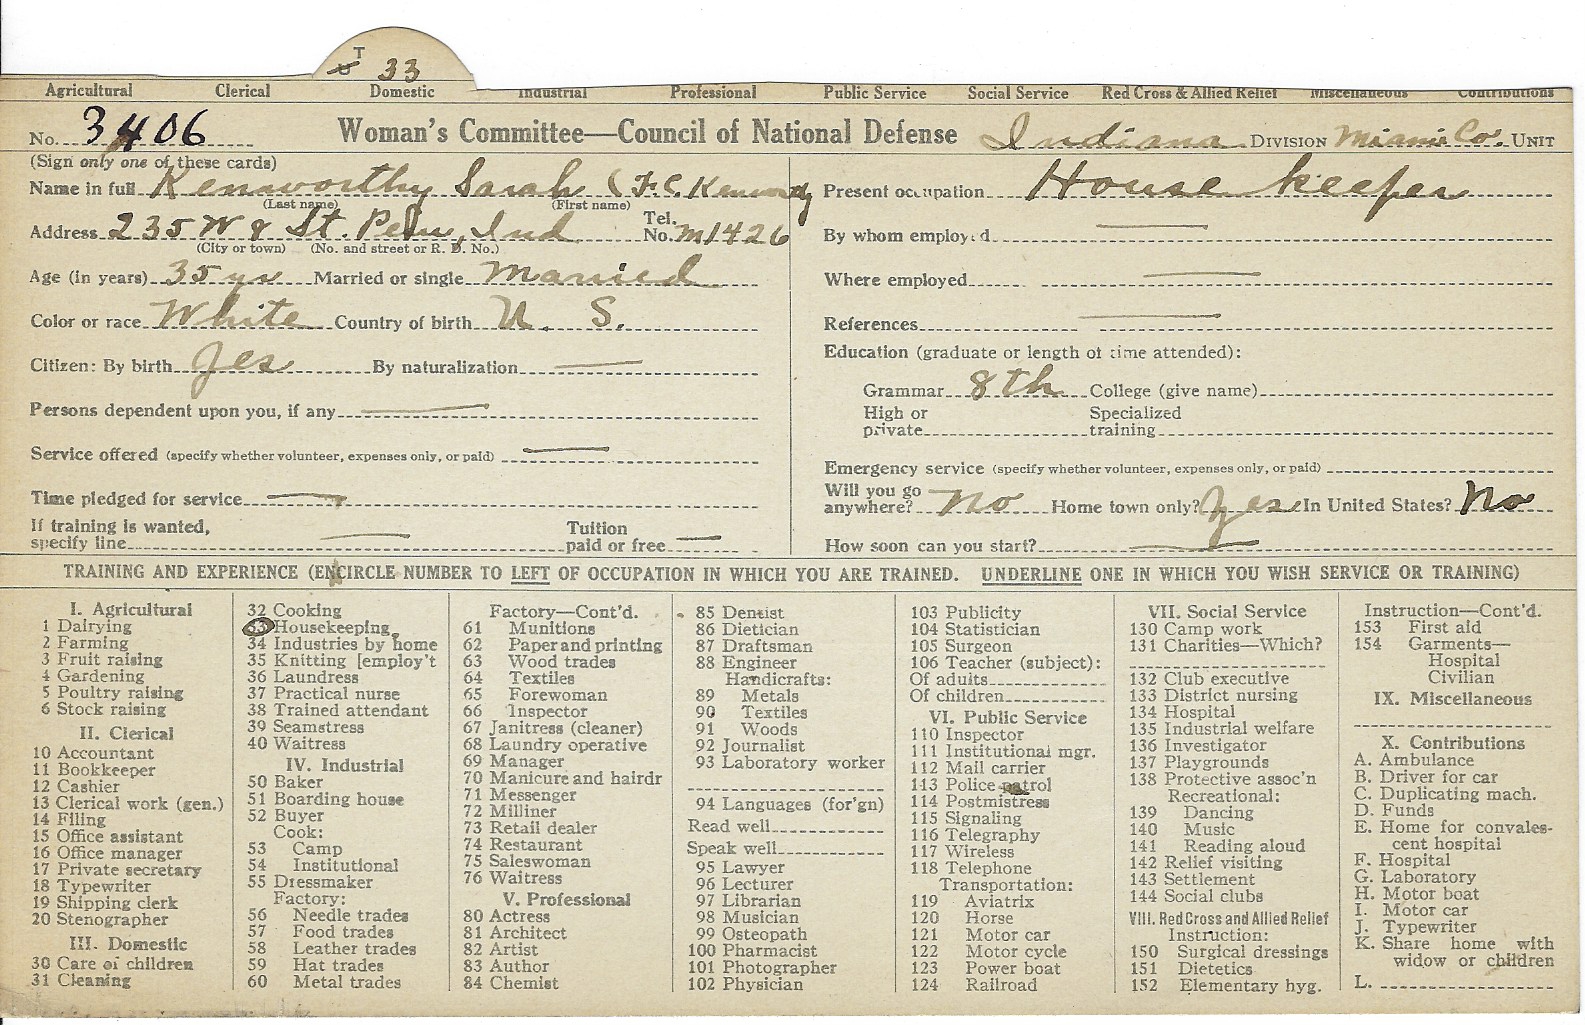 T
U 33
Agricultural Clerical Domestic Industrial Professional Public Service Social Service Red Cross & Allied Relief Miscellaneous Contributions
No. 3406 Woman's Committee—Council of National Defense Indiana DIVISION Miami Co. UNIT
(Sign only one of these cards)
Name in full Kenworthy Sarah (F.C. Kenworthy
(Last name) (First name)
Address 235 W 8 St. Peru, Ind Tel. No. M1426
(City or town) (No. and street or R. D. No.)
Age (in years) 35 yrs Married or single Married
Color or race White Country of birth U. S.
Citizen: By birth Yes By naturalization —
Persons dependent upon you, if any —
Service offered (specify whether volunteer, expenses only, or paid) —
Time pledged for service —
If training is wanted,
specify line — Tuition paid or free —
Present occupation House keeper
By whom employed —
Where employed —
References —
Education (graduate or length of time attended):
Grammar 8th College (give name)
High or private Specialized training
Emergency service (specify whether volunteer, expenses only, or paid)
Will you go anywhere? No Home town only? Yes In United States? No
How soon can you start? —
TRAINING AND EXPERIENCE (ENCIRCLE NUMBER TO LEFT OF OCCUPATION IN WHICH YOU ARE TRAINED. UNDERLINE ONE IN WHICH YOU WISH SERVICE OR TRAINING)
I. Agricultural
1 Dairying
2 Farming
3 Fruit raising
4 Gardening
5 Poultry raising
6 Stock raising
II. Clerical
10 Accountant
11 Bookkeeper
12 Cashier
13 Clerical work (gen.)
14 Filing
15 Office assistant
16 Office manager
17 Private secretary
18 Typewriter
19 Shipping clerk
20 Stenographer
III. Domestic
30 Care of children
31 Cleaning
32 Cooking
33 Housekeeping
34 Industries by home
35 Knitting [employ't
36 Laundress
37 Practical nurse
38 Trained attendant
39 Seamstress
40 Waitress
IV. Industrial
50 Baker
51 Boarding house
52 Buyer
Cook:
53 Camp
54 Institutional
55 Dressmaker
Factory:
56 Needle trades
57 Food trades
58 Leather trades
59 Hat trades
60 Metal trades
Factory—Cont'd.
61 Munitions
62 Paper and printing
63 Wood trades
64 Textiles
65 Forewoman
66 Inspector
67 Janitress (cleaner)
68 Laundry operative
69 Manager
70 Manicure and hairdr
71 Messenger
72 Milliner
73 Retail dealer
74 Restaurant
75 Saleswoman
76 Waitress
V. Professional
80 Actress
81 Architect
82 Artist
83 Author
84 Chemist
85 Dentist
86 Dietician
87 Draftsman
88 Engineer
Handicrafts:
89 Metals
90 Textiles
91 Woods
92 Journalist
93 Laboratory worker
94 Languages (for'gn)
Read well
Speak well
95 Lawyer
96 Lecturer
97 Librarian
98 Musician
99 Osteopath
100 Pharmacist
101 Photographer
102 Physician
103 Publicity
104 Statistician
105 Surgeon
106 Teacher (subject):
Of adults
Of children
VI. Public Service
110 Inspector
111 Institutional mgr.
112 Mail carrier
113 Police patrol
114 Postmistress
115 Signaling
116 Telegraphy
117 Wireless
118 Telephone
Transportation:
119 Aviatrix
120 Horse
121 Motor car
122 Motor cycle
123 Power boat
124 Railroad
VII. Social Service
130 Camp work
131 Charities—Which?
132 Club executive
133 District nursing
134 Hospital
135 Industrial welfare
136 Investigator
137 Playgrounds
138 Protective assoc'n
Recreational:
139 Dancing
140 Music
141 Reading aloud
142 Relief visiting
143 Settlement
144 Social clubs
VIII. Red Cross and Allied Relief
Instruction:
150 Surgical dressings
151 Dietetics
152 Elementary hyg.
Instruction—Cont'd.
153 First aid
154 Garments—
Hospital
Civilian
IX. Miscellaneous
X. Contributions
A. Ambulance
B. Driver for car
C. Duplicating mach.
D. Funds
E. Home for convales-
cent hospital
F. Hospital
G. Laboratory
H. Motor boat
I. Motor car
J. Typewriter
K. Share home with
widow or children
L.